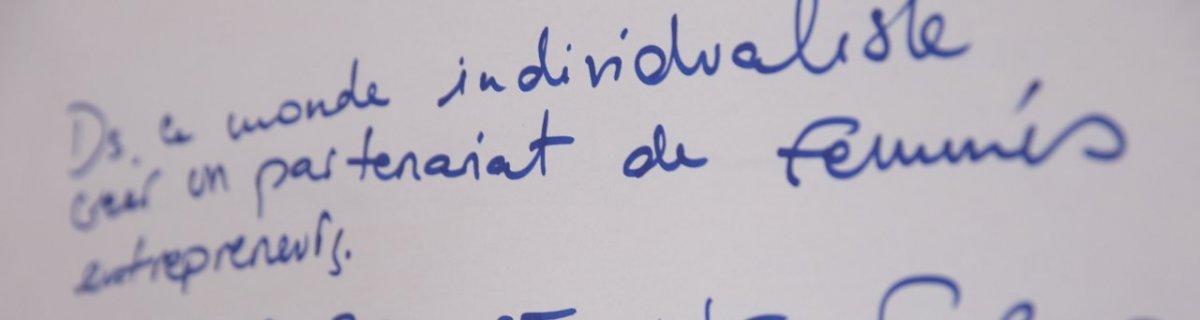 Ds. ce monde individualiste
créer un partenariat de femmes
entrepreneurs.